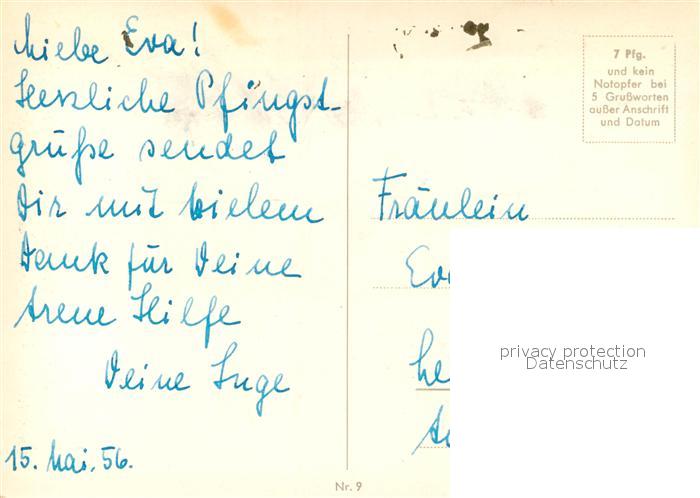 Liebe Eva!
Herzliche Pfingst-
grüße sendet
Dir mit vielem
Dank für Deine
treue Hilfe
Deine Inge
15. Mai. 56.
7 Pfg.
und kein
Notopfer bei
5 Grußworten
außer Anschrift
und Datum
Fräulein
privacy protection
Datenschutz
Nr. 9